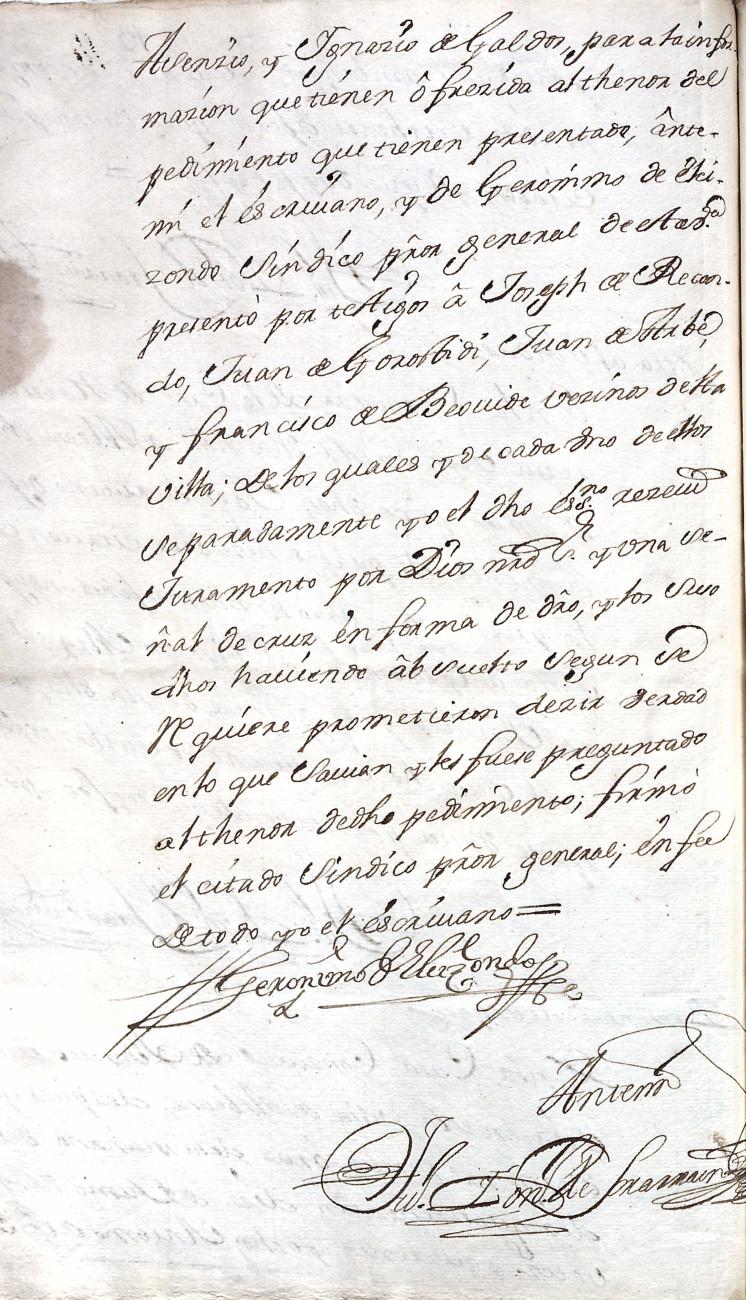 Asenzio, y Ignazio de Galdos, para la infor
mazion que tienen ôfrezida al thenor del
pedimiento que tienen presentado, ânte-
mi el êscriuano, y de Geronimo de êlei-
zondo Sindico prôr general de esta v.ª
presentò por testigos â Joseph de Recon-
do, Juan de Gorostidi, Juan de Arbe,
y francisco de Beouide vezinos de esta
villa; De los quales y de cada vno de ellos
separadamente yo el dho êss.no rezeui
Juramento por Dios nro S.r y vna se-
ñal de cruz ên forma de dro, y los suso
dhos hauiendo âbsuelto segun se
Re quiere prometieron dezir verdad
en lo que Sauian y les fuese preguntado
al thenor de dho pedimiento; firmò
el citado Sindico prôr general; ên fee
De todo yo el êscriuano=
Geronimo de Eleizondo
Antemi